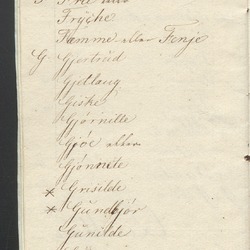 Frÿche
Famme eller Fenje
G Gjertrud
Gjetlaug
Giske
Gjørnille
Gjöe eller
Gjønnete
× Griselde
× Gundbjör
Gunilde